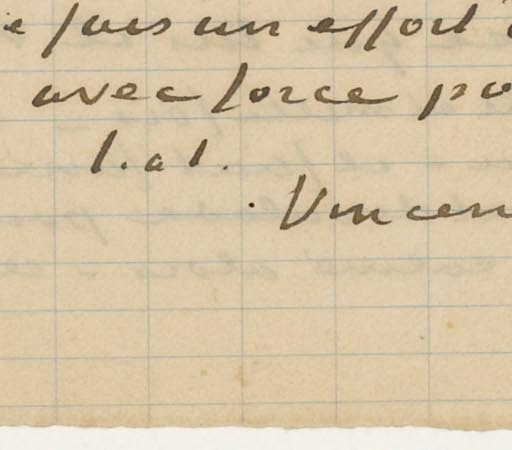 e fais un effort
avec force po
t. à t.
Vincen